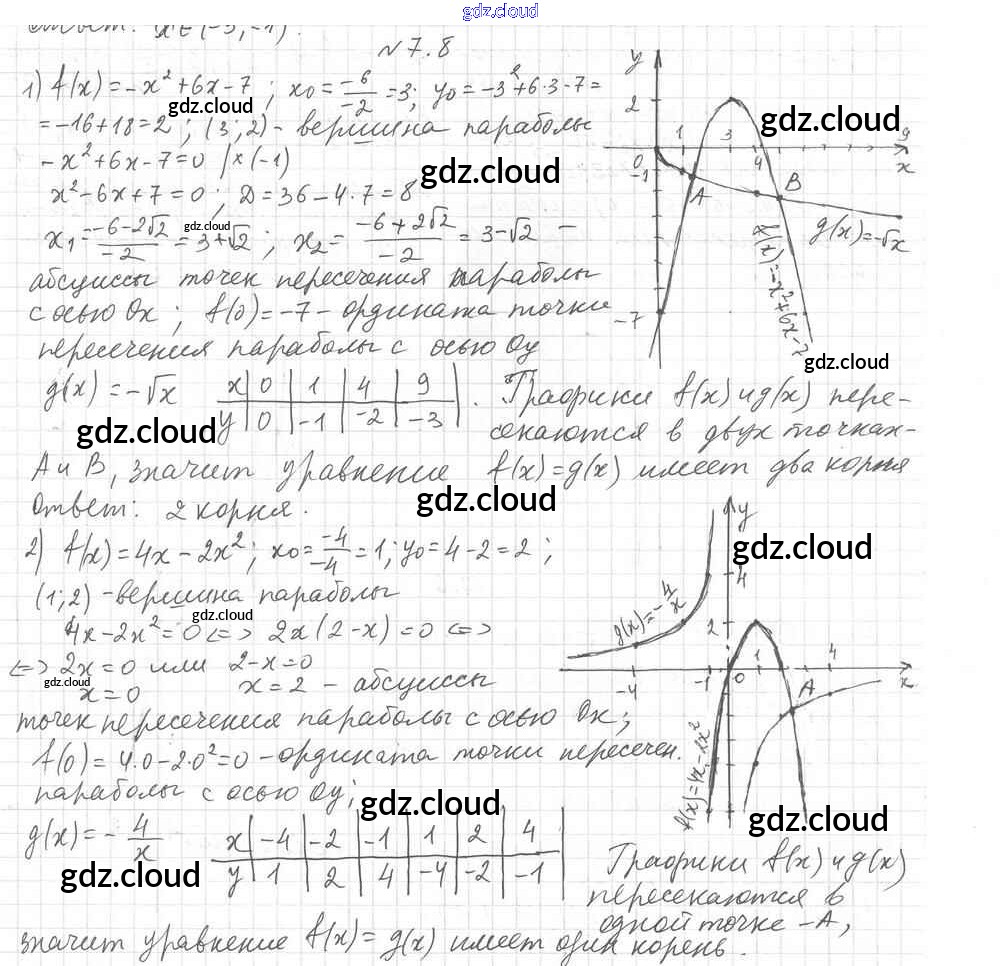 gdz.cloud
Ответ: x∈(-3;-1).
№7.8
1) f(x)=-x²+6x-7; x₀=-6/-2=3; y₀=-3²+6·3-7=
=-16+18=2; (3;2)- вершина параболы
-x²+6x-7=0 |×(-1)
x²-6x+7=0; D=36-4·7=8
x₁=-6-2√2/-2=3+√2; x₂=-6+2√2/-2=3-√2 -
абсциссы точек пересечения параболы
с осью Ox; f(0)=-7-ордината точки
пересечения параболы с осью Oy
g(x)=-√x
x | 0 | 1 | 4 | 9
y | 0 | -1 | -2 | -3
. Графики f(x) и g(x) пере-
секаются в двух точках-
A и B, значит уравнение f(x)=g(x) имеет два корня
Ответ: 2 корня.
y
2
1
3
9
0
4
x
-1
A
B
g(x)=-√x
f(x)=-x²+6x-7
-7
2) f(x)=4x-2x²; x₀=-4/-4=1; y₀=4-2=2;
(1;2)-вершина параболы
4x-2x²=0<=> 2x(2-x)=0<=>
<=>2x=0 или 2-x=0
x=0 x=2 - абсциссы
точек пересечения параболы с осью Ox;
f(0)=4·0-2·0²=0-ордината точки пересечен.
параболы с осью Oy;
g(x)=-4/x
x | -4 | -2 | -1 | 1 | 2 | 4
y | 1 | 2 | 4 | -4 | -2 | -1
y
4
g(x)=-4/x
2
-4
-1
0
1
4
x
A
f(x)=4x-2x²
Графики f(x) и g(x)
пересекаются в
одной точке -A,
значит уравнение f(x)=g(x) имеет один корень.
gdz.cloud
gdz.cloud
gdz.cloud
gdz.cloud
gdz.cloud
gdz.cloud
gdz.cloud
gdz.cloud
gdz.cloud
gdz.cloud
gdz.cloud
gdz.cloud